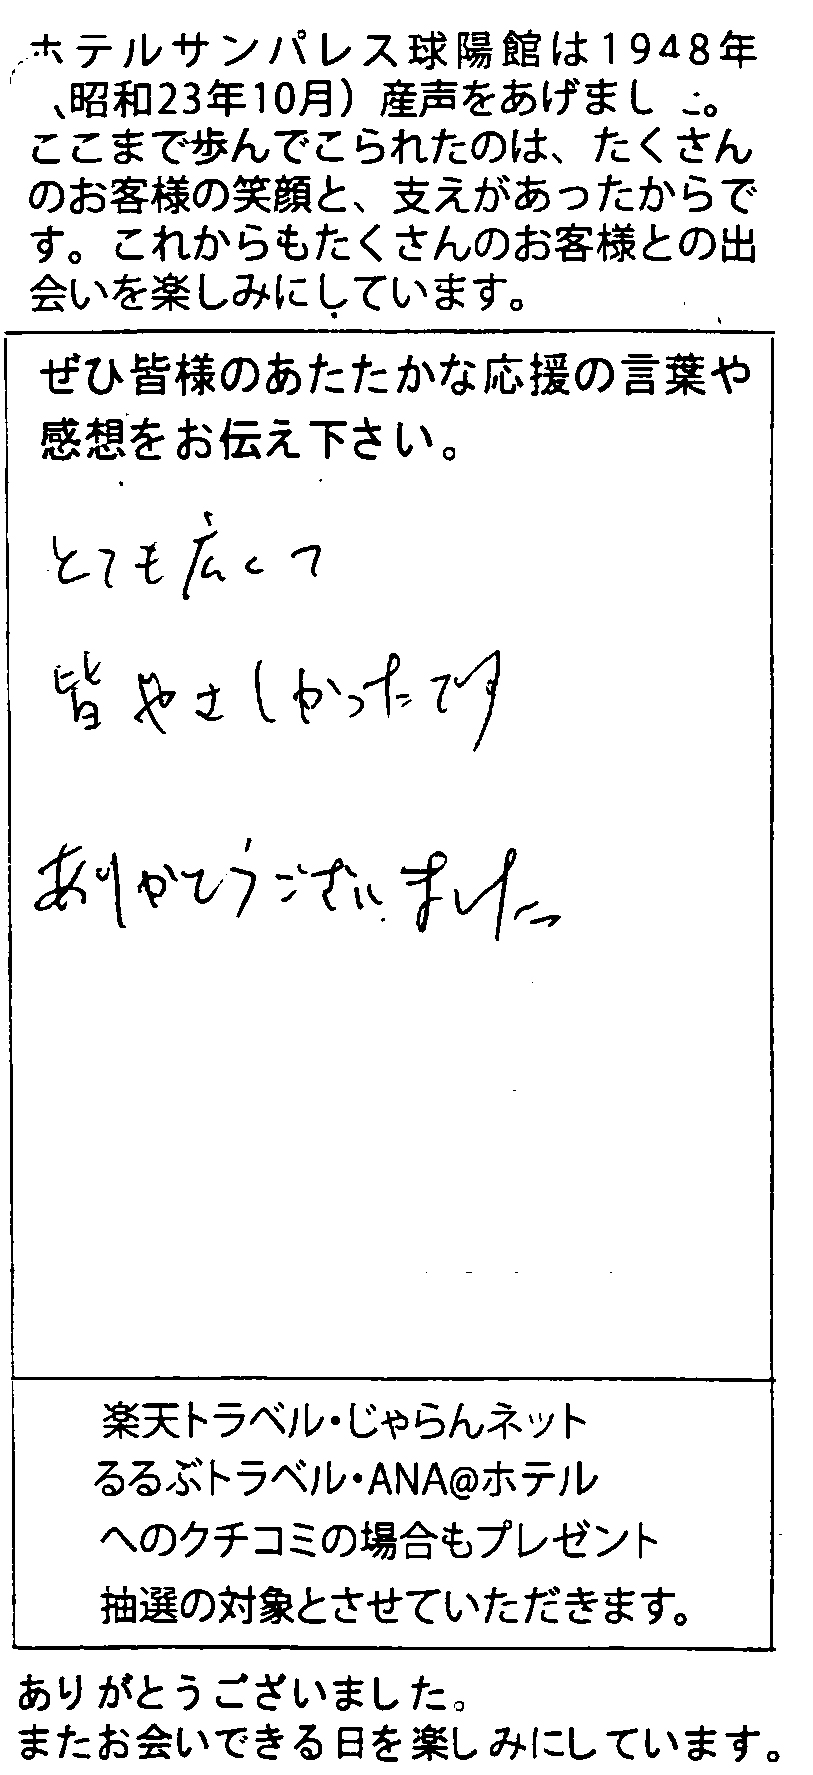 ホテルサンパレス球陽館は1948年
(昭和23年10月）産声をあげました。
ここまで歩んでこられたのは、たくさん
のお客様の笑顔と、支えがあったからで
す。これからもたくさんのお客様との出
会いを楽しみにしています。
ぜひ皆様のあたたかな応援の言葉や
感想をお伝え下さい。
とても広くて
皆やさしかったです
ありがとうございました
楽天トラベル・じゃらんネット
るるぶトラベル・ANA@ホテル
へのクチコミの場合もプレゼント
抽選の対象とさせていただきます。
ありがとうございました。
またお会いできる日を楽しみにしています。